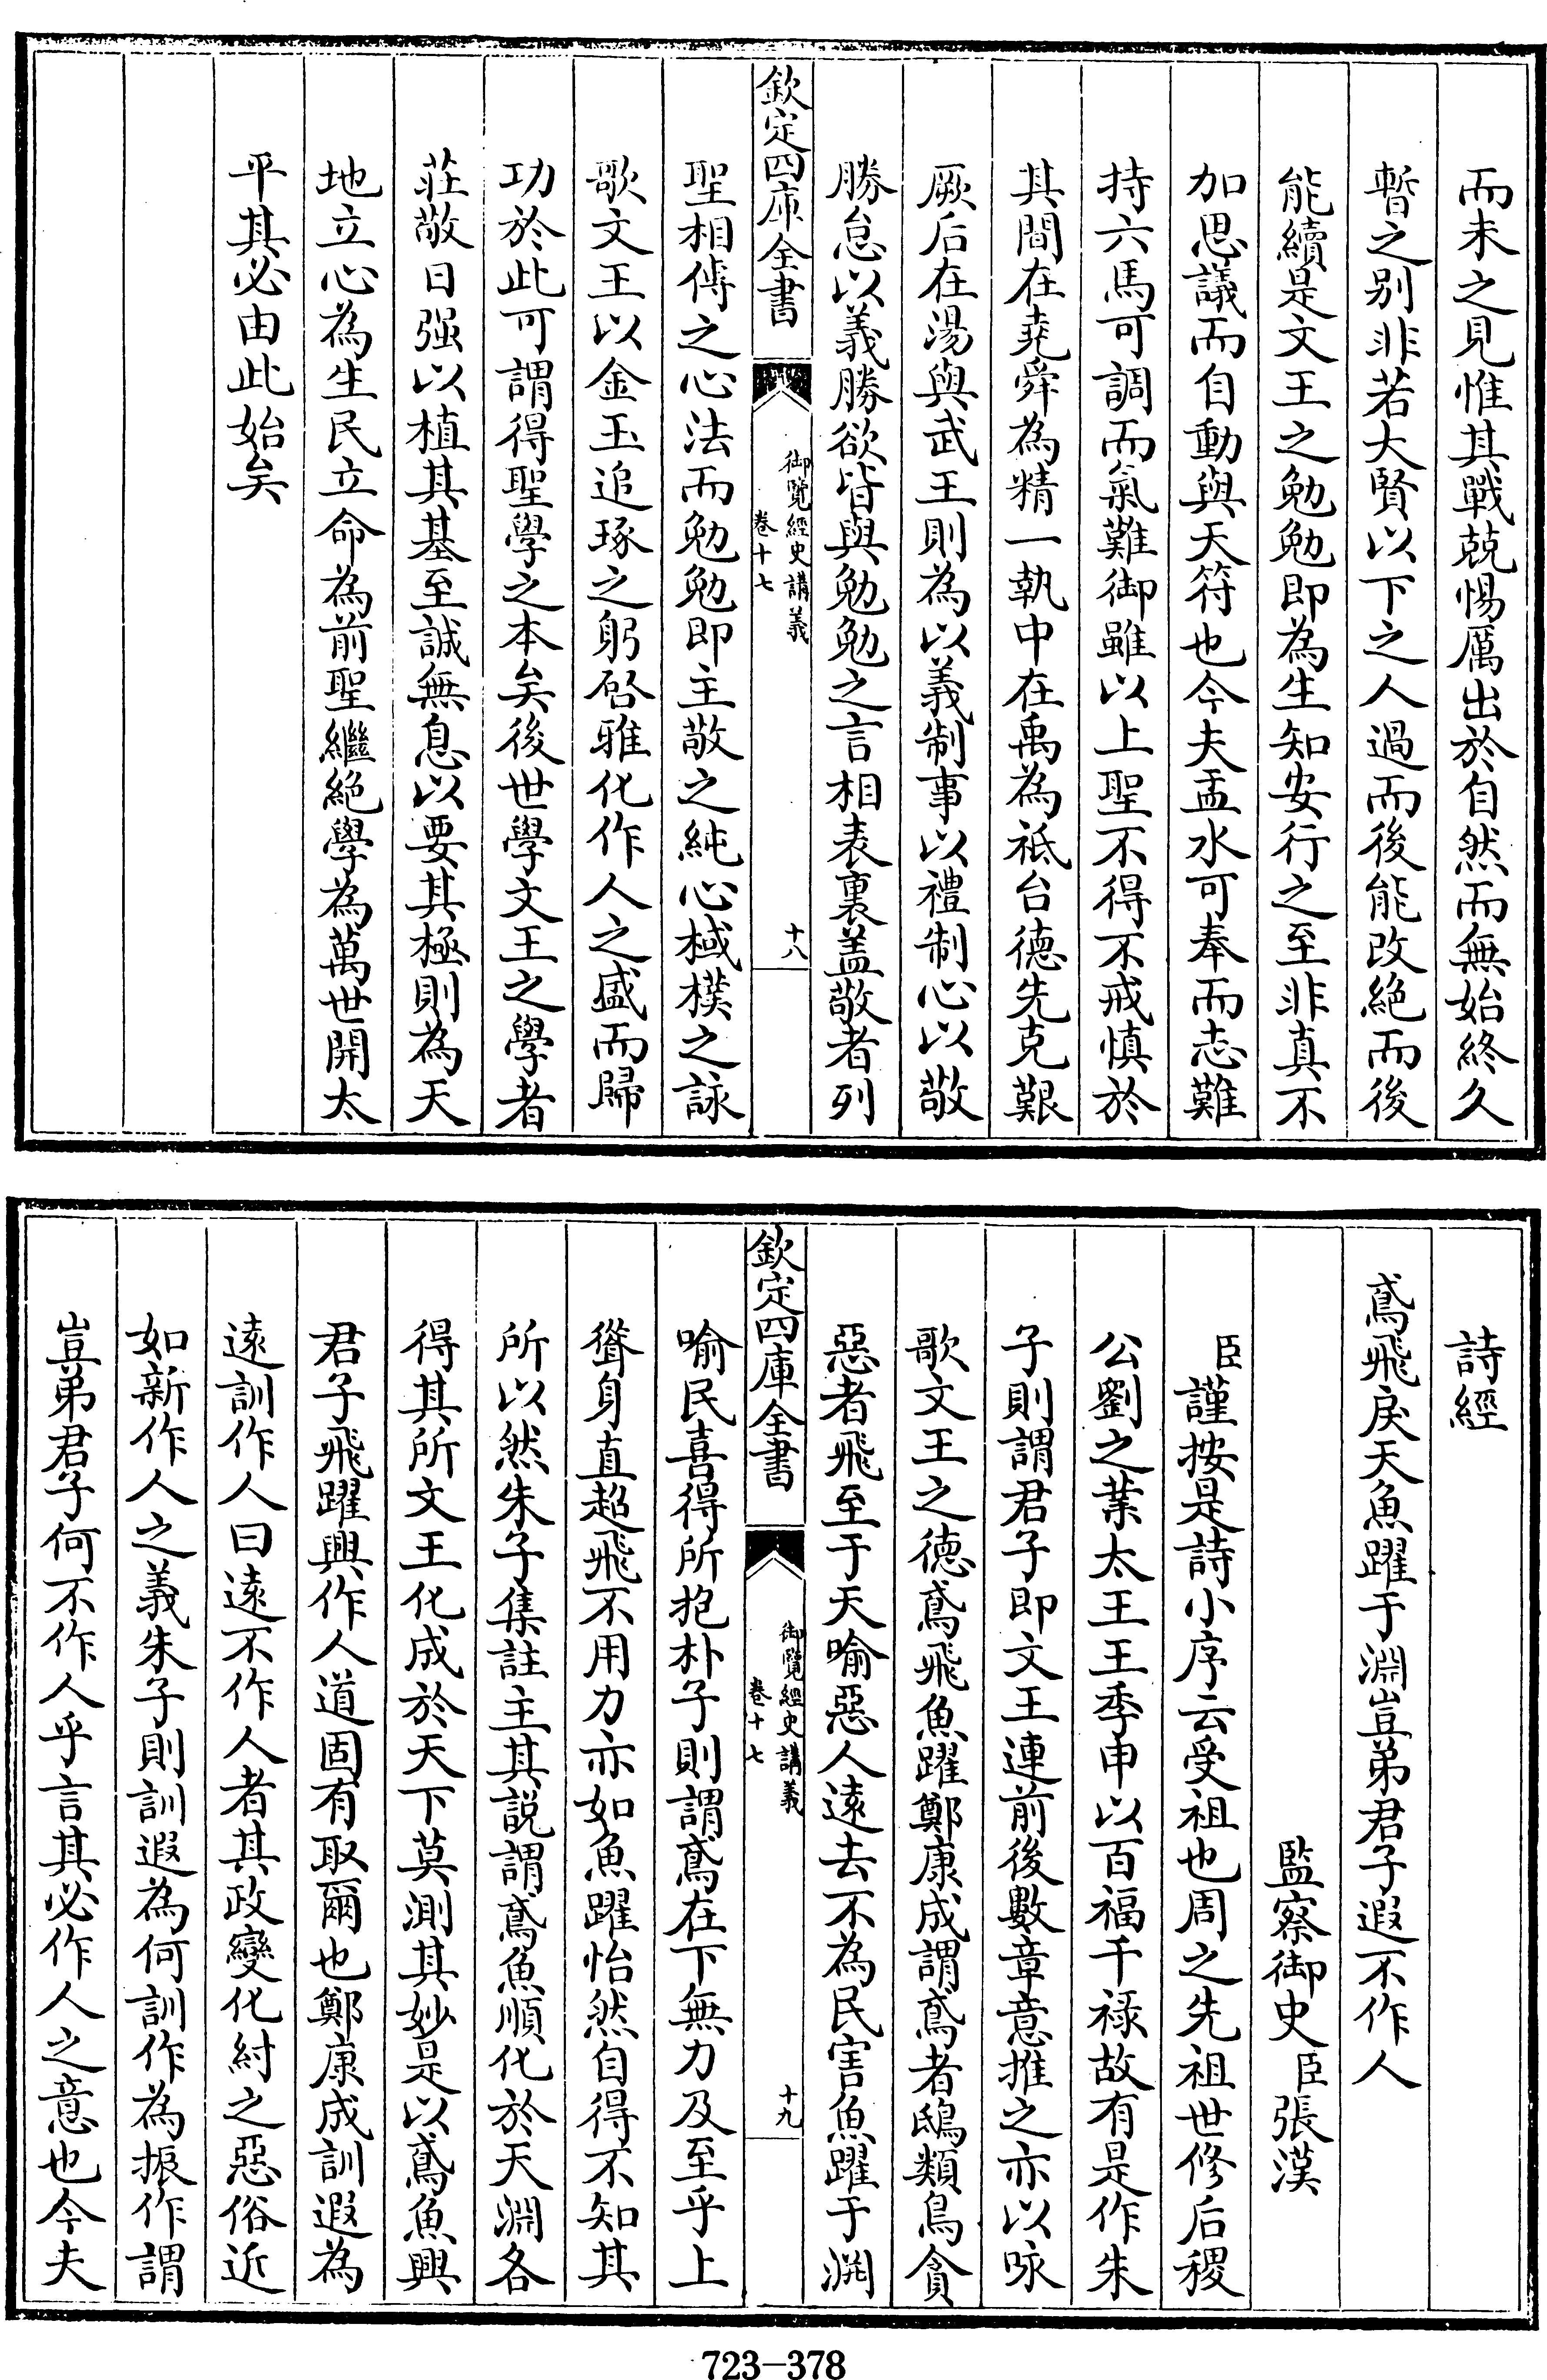 而未之見惟其戰兢惕厲出於自然而無始終久
暫之别非若大賢以下之人過而後能改絶而後
能續是文王之勉勉即為生知安行之至非真不
加思議而自動與天符也今夫盂水可奉而志難
持六馬可調而氣難御雖以上聖不得不戒慎於
其間在堯舜為精一執中在禹為祗台德先克艱
厥后在湯與武王則為以義制事以禮制心以敬
勝怠以義勝欲皆與勉勉之言相表裏盖敬者列
欽定四庫全書
御覽經史講義
卷十七
十八
聖相傳之心法而勉勉即主敬之純心棫樸之詠
歌文王以金玉追琢之躬啓雅化作人之盛而歸
功於此可謂得聖學之本矣後世學文王之學者
莊敬日强以植其基至誠無息以要其極則為天
地立心為生民立命為前聖繼絶學為萬世開太
平其必由此始矣
詩經
鳶飛戾天魚躍于淵豈弟君子遐不作人
監察御史臣張漢
臣謹按是詩小序云受祖也周之先祖世修后稷
公劉之業太王王季申以百福干禄故有是作朱
子則謂君子即文王連前後數章意推之亦以咏
歌文王之德鳶飛魚躍鄭康成謂鳶者鴟類鳥貪
惡者飛至于天喻惡人遠去不為民害魚躍于淵
欽定四庫全書
御覽經史講義
卷十七
十九
喻民喜得所抱朴子則謂鳶在下無力及至乎上
聳身直超飛不用力亦如魚躍怡然自得不知其
所以然朱子集註主其説謂鳶魚順化於天淵各
得其所文王化成於天下莫測其妙是以鳶魚興
君子飛躍興作人道固有取爾也鄭康成訓遐為
遠訓作人曰遠不作人者其政變化紂之惡俗近
如新作人之義朱子則訓遐為何訓作為振作謂
豈弟君子何不作人乎言其必作人之意也今夫
723-378